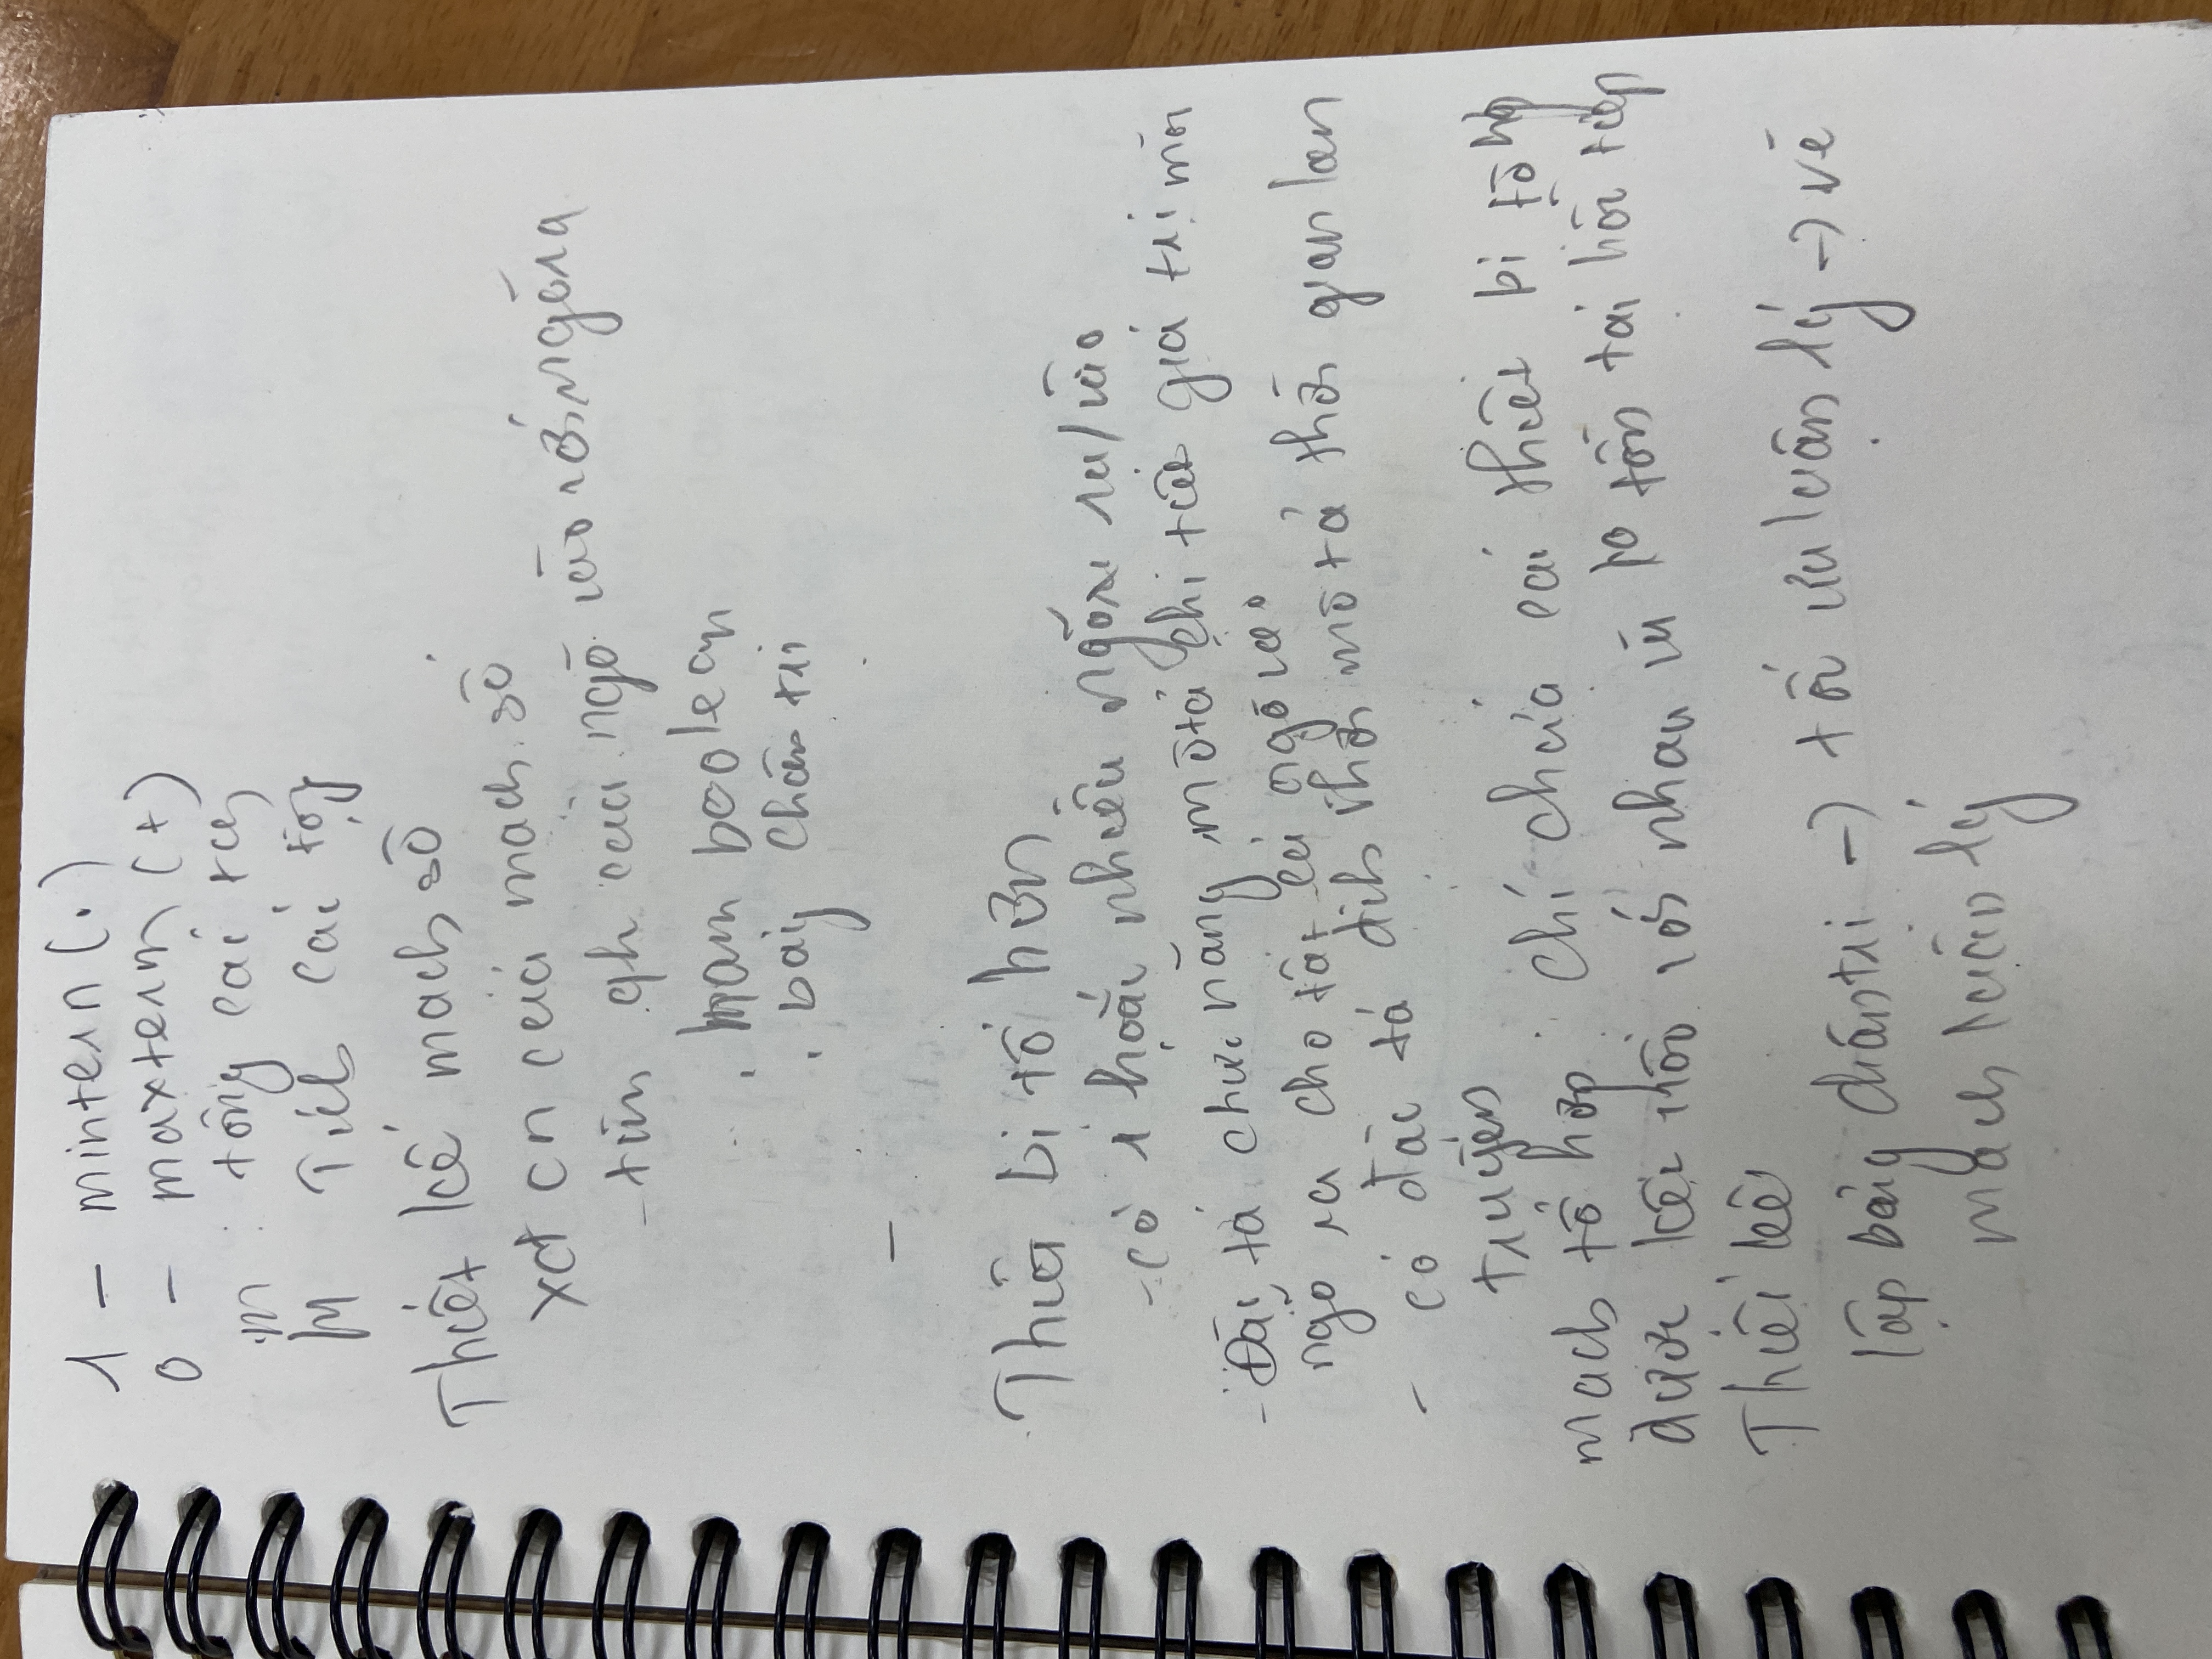 1 - mintern (.)
0 - maxterm (+)
m : tổng các tích
M Tích các tổng
Thiết kế mạch số
xđ cn của mạch số
- tìm qh của ngõ vào với ngõ ra
. hàm boolean
. bảng chân trị
-
Thiết bị tổ hợp
- có 1 hoặc nhiều ngõ ra/vào
- Đặc tả chức năng mô tả chi tiết giá trị mỗi
ngõ ra cho tất cả ngõ vào
- có đặc tả định thời mô tả thời gian lan
truyền
mạch tổ hợp : chỉ chứa các thiết bị tổ hợp
được kết nối với nhau và ko tồn tại hồi tiếp
Thiết kế
lập bảng chân trị -> tối ưu luận lý -> vẽ
mạch luận lý